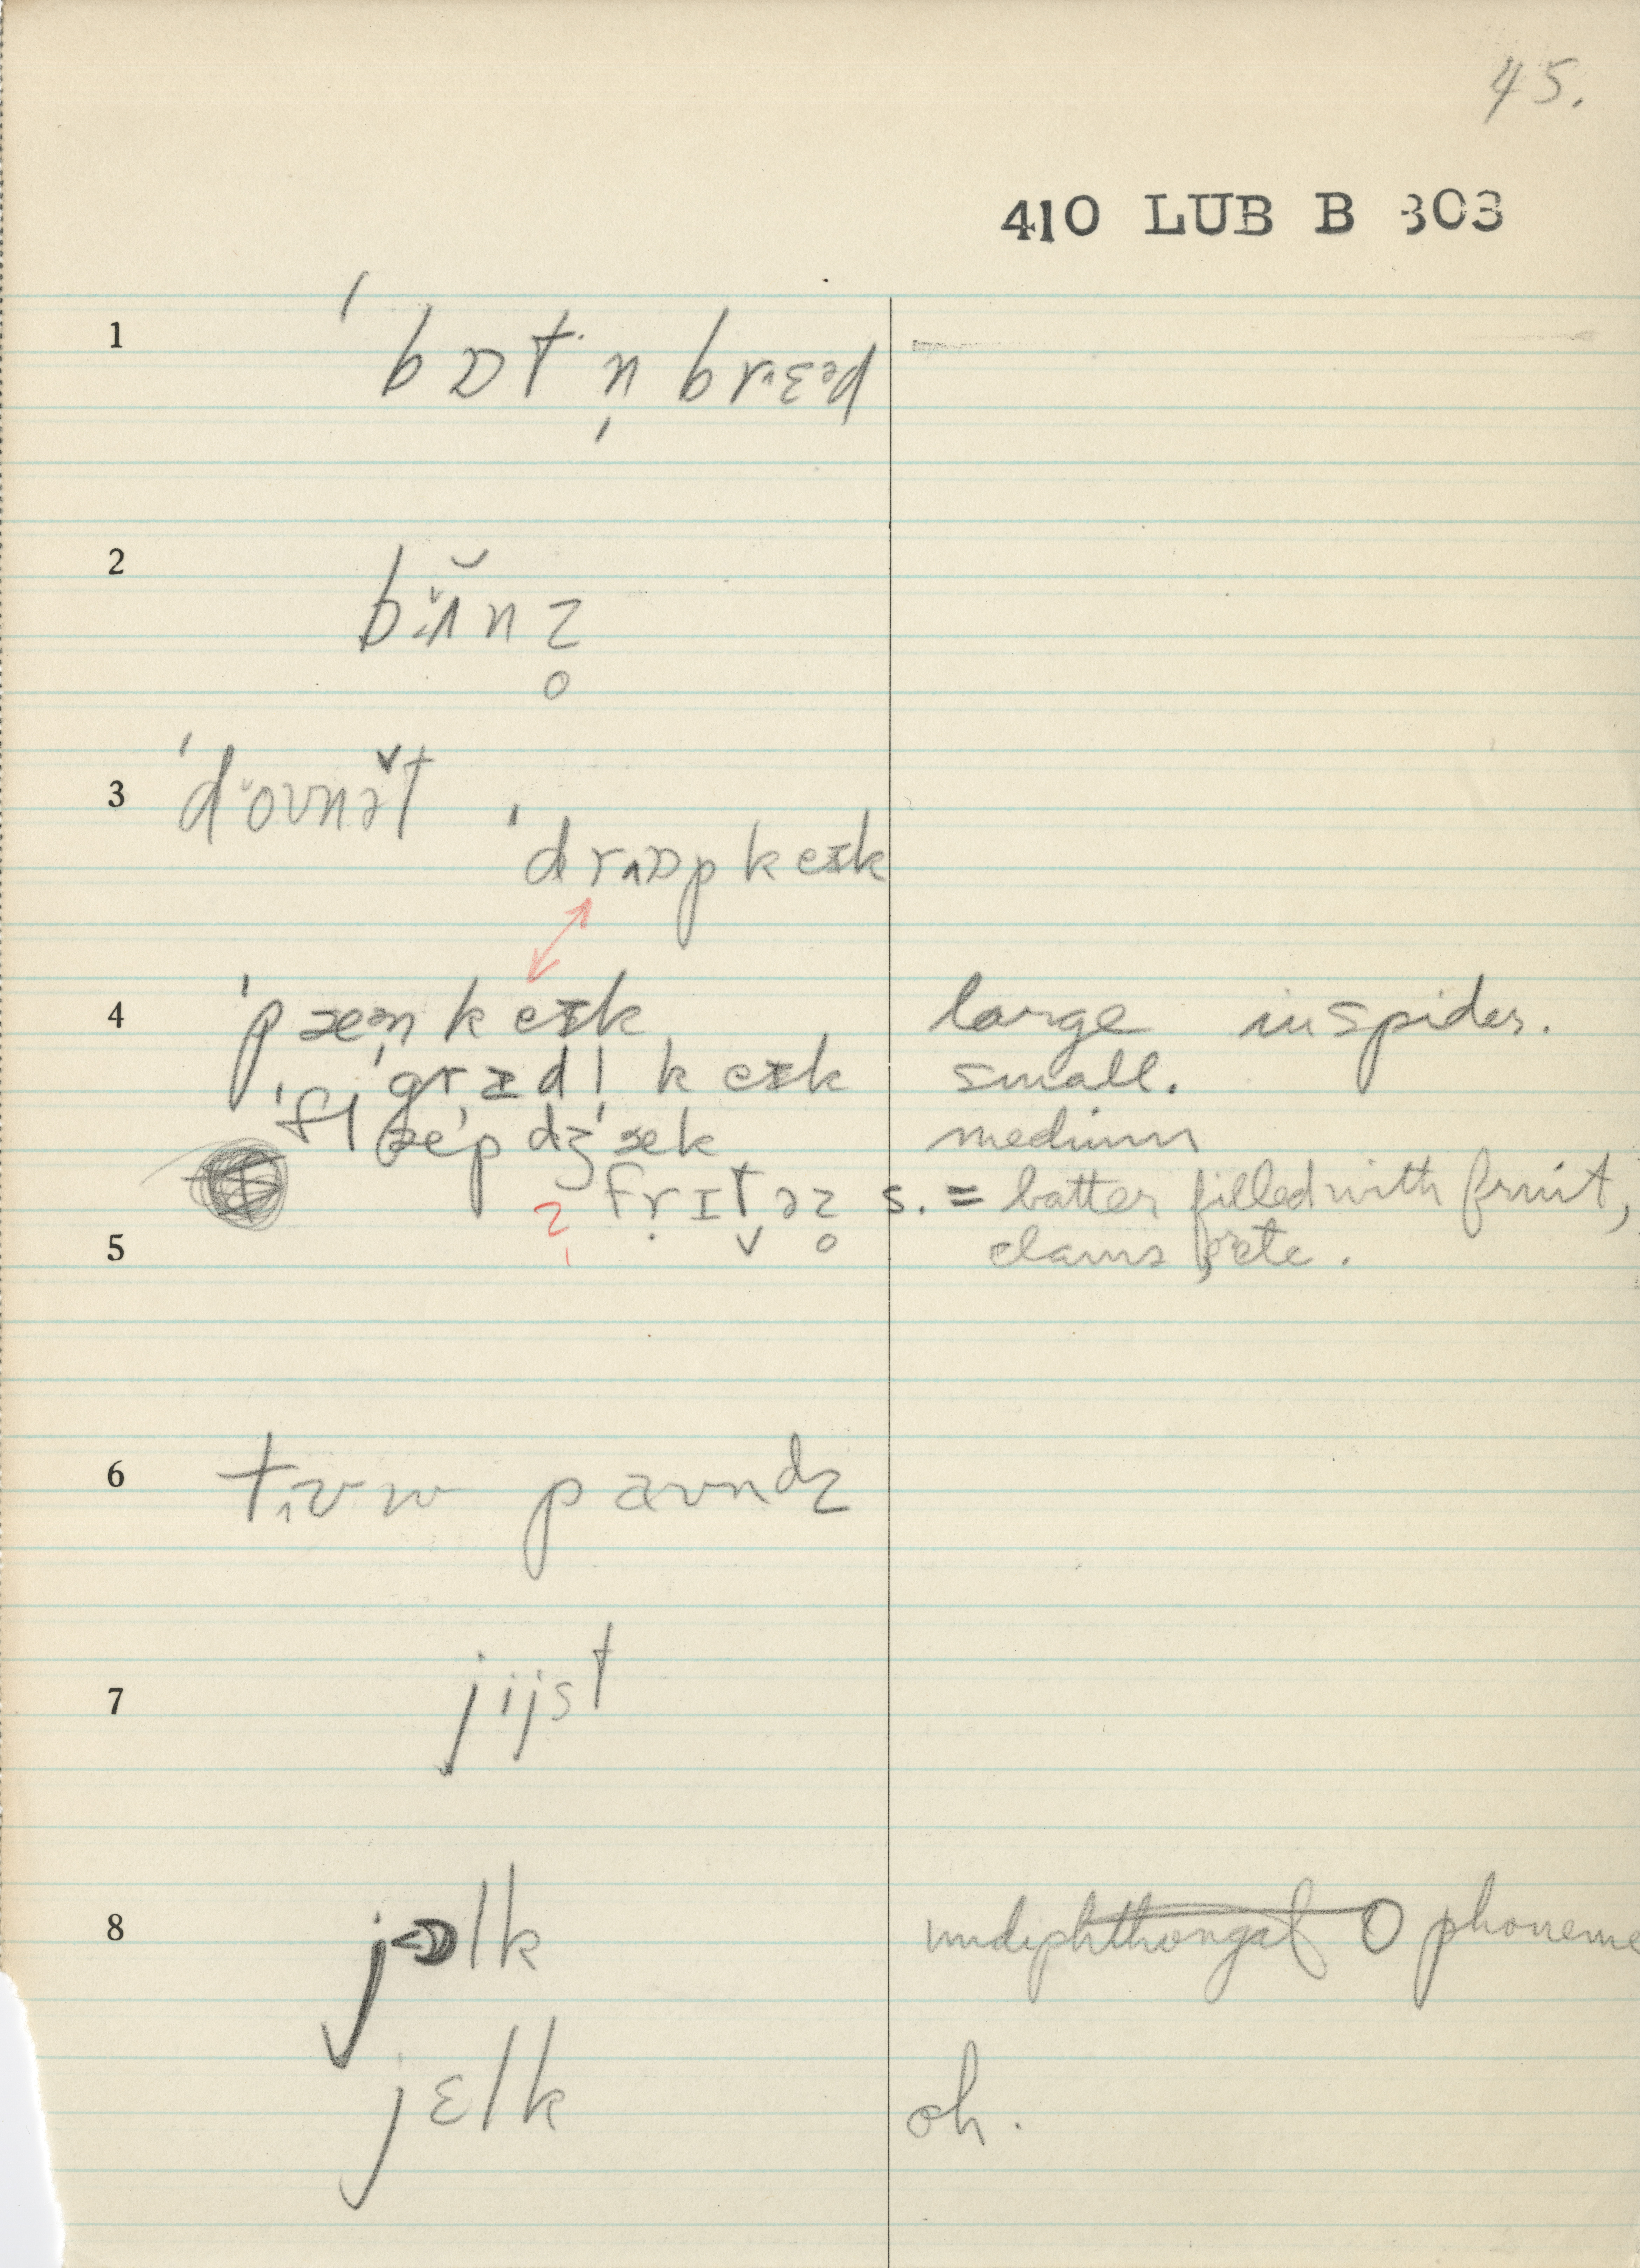 45.
410 LUB B 303
1 ˈbɒt n̩ brɛəd
2 bɪ̆ɪnz̥
3 ˈdovnət
ˈdrɒp keɪk
4 ˈpæən keɪk large in spider.
ˈgrɪdl̩ keɪk small.
ˈflæˈp dʒæk medium
frɪt̬əz̥ s. = batter filled with fruit,
5 clams, etc.
6 tɪʊw paʊndz
7 jijst
8 jolk phoneme
jɛlk oh.